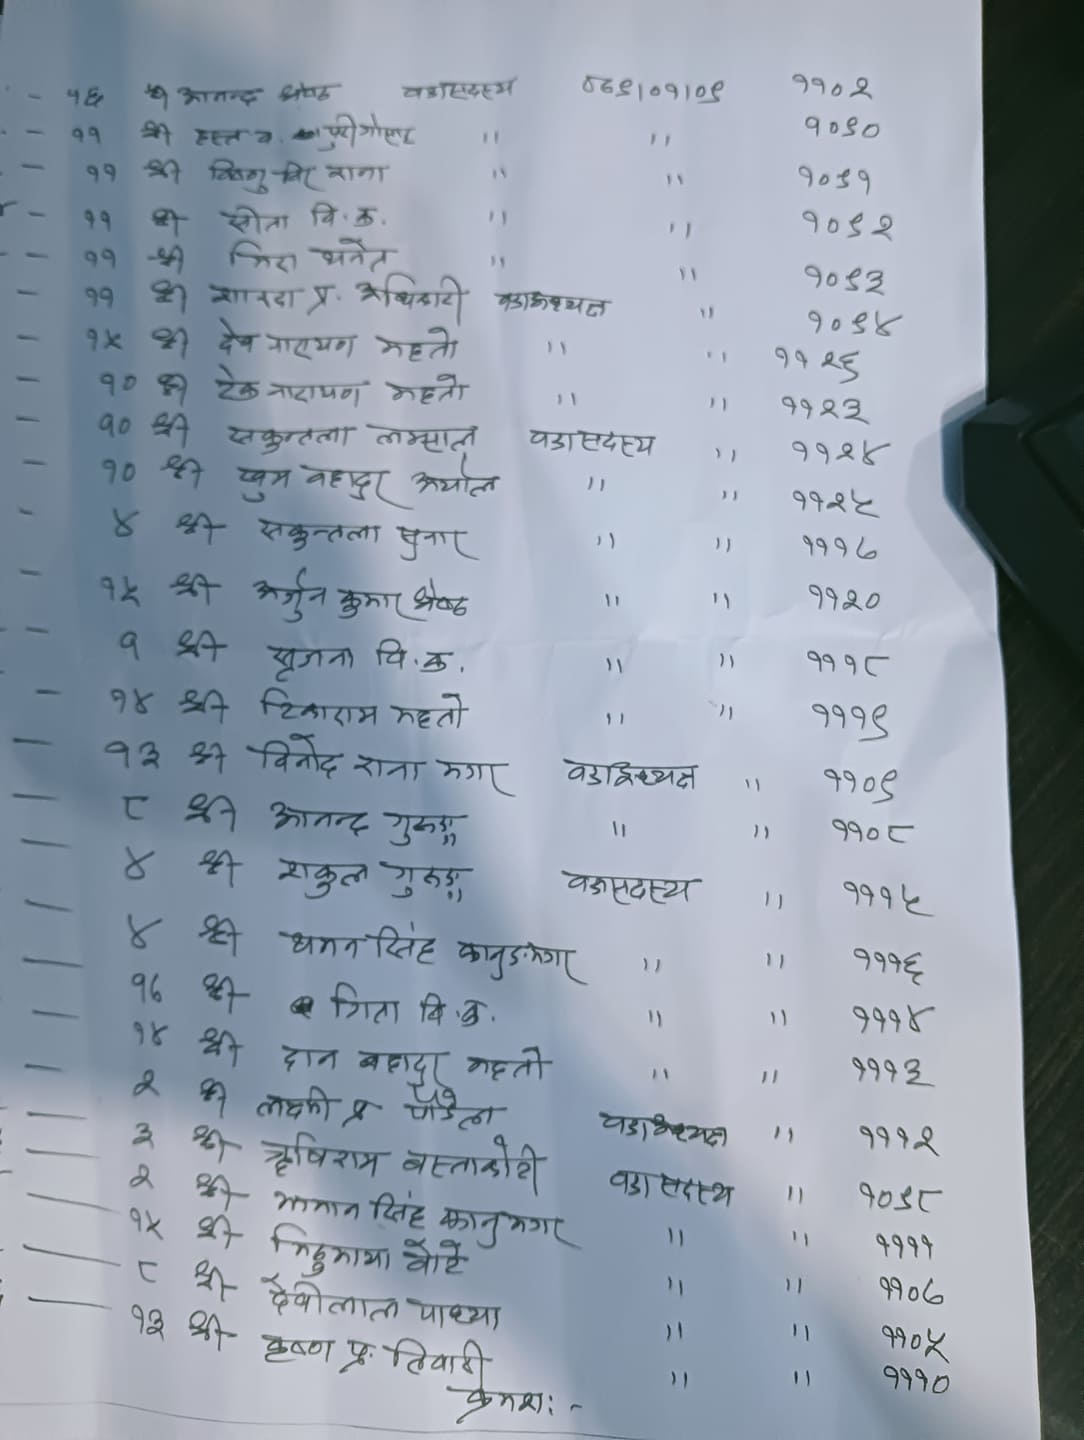 - १६ श्री आनन्द श्रेष्ठ वडासदस्य ०७९।०१।०९ ११०२
- ११ श्री हस्त ब. पुरीगोसाई " " १०९०
- ११ श्री विष्णु विर राना " " १०९१
- ११ श्री सीता वि.क. " " १०९२
- ११ श्री मिरा थनेत " " १०९३
- ११ श्री शारदा प्र. अधिकारी वडाअध्यक्ष " १०९४
- १५ श्री देव नारायण महतो " " ११२६
- १० श्री टेक नारायण महतो " " ११२३
- १० श्री सकुन्तला लम्साल वडासदस्य " ११२४
- १० श्री खुम बहादुर अर्याल " " ११२५
- ४ श्री सकुन्तला सुनार " " १११७
- १५ श्री अर्जुन कुमार श्रेष्ठ " " ११२०
- १ श्री सृजना वि.क. " " १११८
- १४ श्री टिकाराम महतो " " १११९
- १३ श्री विनोद राना मगर वडाअध्यक्ष " ११०९
- ८ श्री आनन्द गुरुङ्ग " " ११०८
- ४ श्री राकुल गुरुङ्ग वडासदस्य " १११५
- ४ श्री थमन सिंह कानुङमगर " " १११६
- १७ श्री गिता वि.क. " " १११४
- १४ श्री दान बहादुर महतो " " १११३
- २ श्री लक्ष्मी प्र पौडेल वडाअध्यक्ष " १११२
- ३ श्री ऋषिराम बस्ताकोटी वडासदस्य " १०९८
- २ श्री मान सिंह कानुमगर " " ११११
- १५ श्री मिठुमाया बोटे " " ११०७
- ८ श्री देवीलाल पाध्या " " ११०५
- १३ श्री कृष्ण प्र. तिवारी " " १११०
क्रमश: -